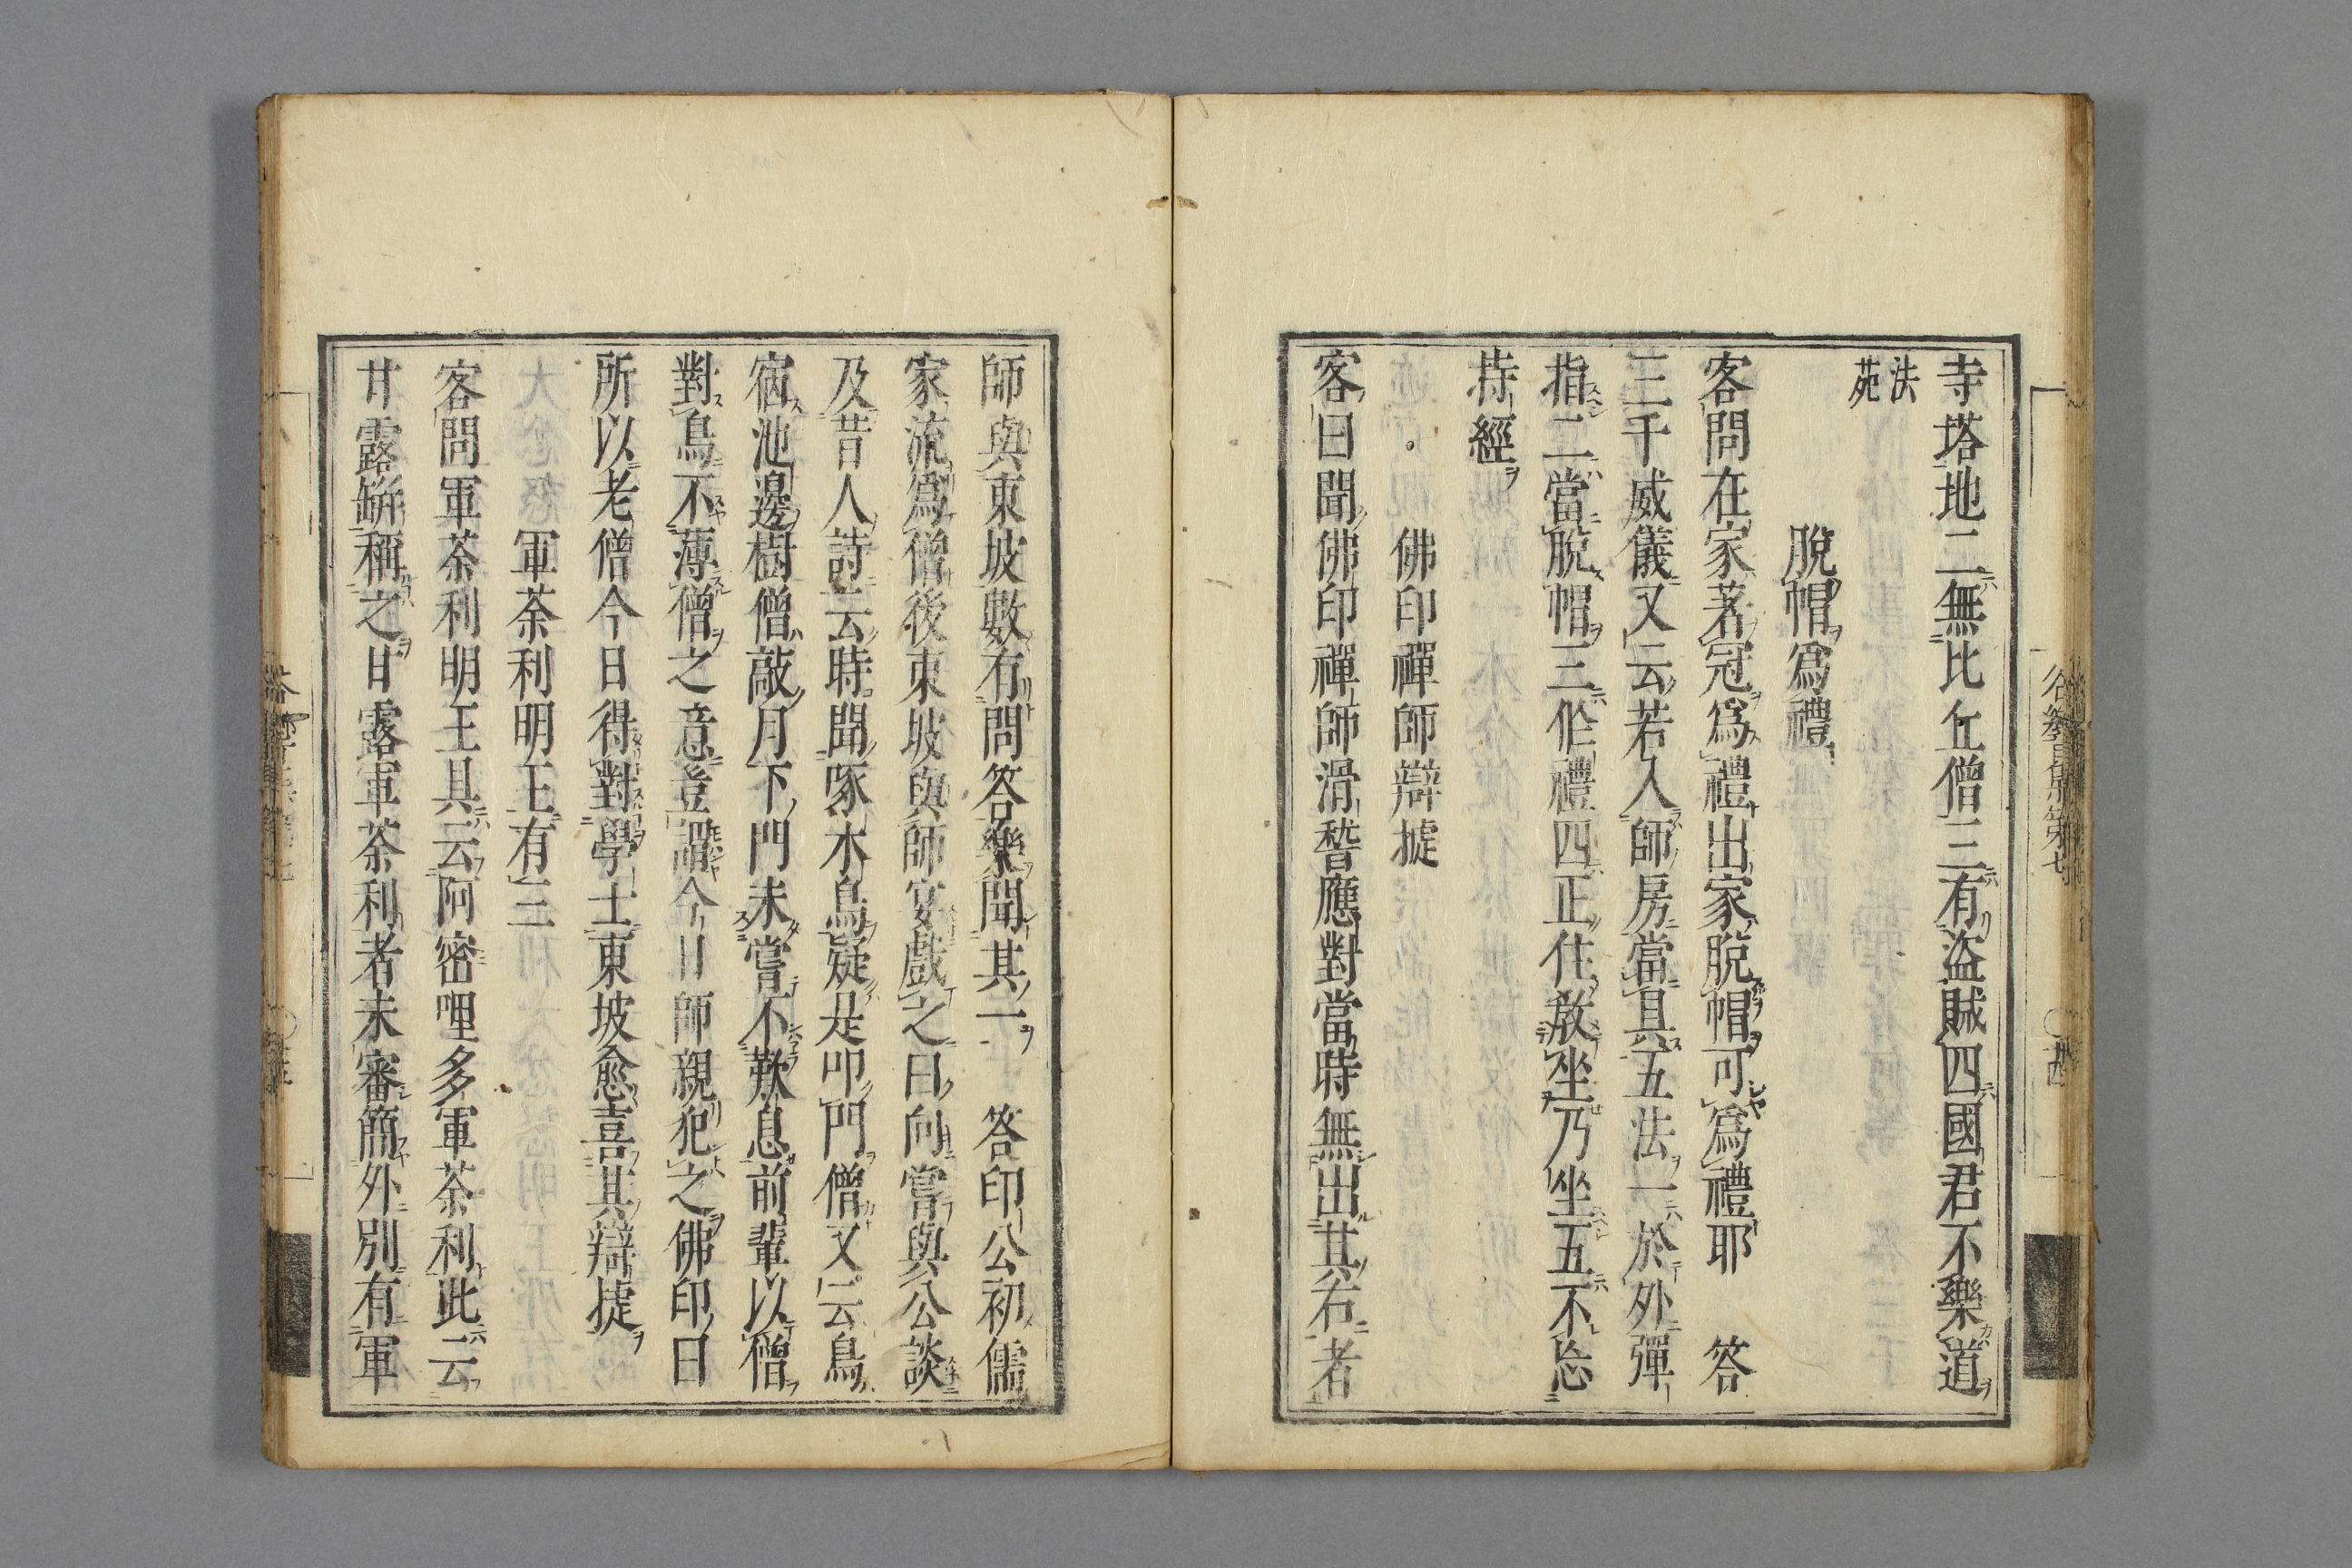 寺塔地二無比丘僧三有盗賊四國君不樂道
法
苑
脫帽爲禮
客問在家著冠爲禮出家脫帽可爲禮耶　答
三千威儀又云若入師房當具五法一於外彈
指二當脫帽三作禮四正住敎坐乃坐五不忘
持經
佛印禪師辯捷
客曰聞佛印禪師滑稽應對當時無出其右者
師與東坡數有問答樂聞其一　答印公初儒
家流爲僧後東坡與師宴戲之曰向嘗與公談
及昔人詩云時聞啄木鳥疑是叩門僧又云鳥
宿池邊樹僧敲月下門未嘗不歎息前輩以僧
對鳥不薄僧之意豈謂今日師親犯之佛印曰
所以老僧今日得對學士東坡愈喜其辯捷
軍荼利明王有三
客問軍荼利明王具云阿密哩多軍荼利此云
甘露缾稱之甘露軍荼利者未審簡外別有軍